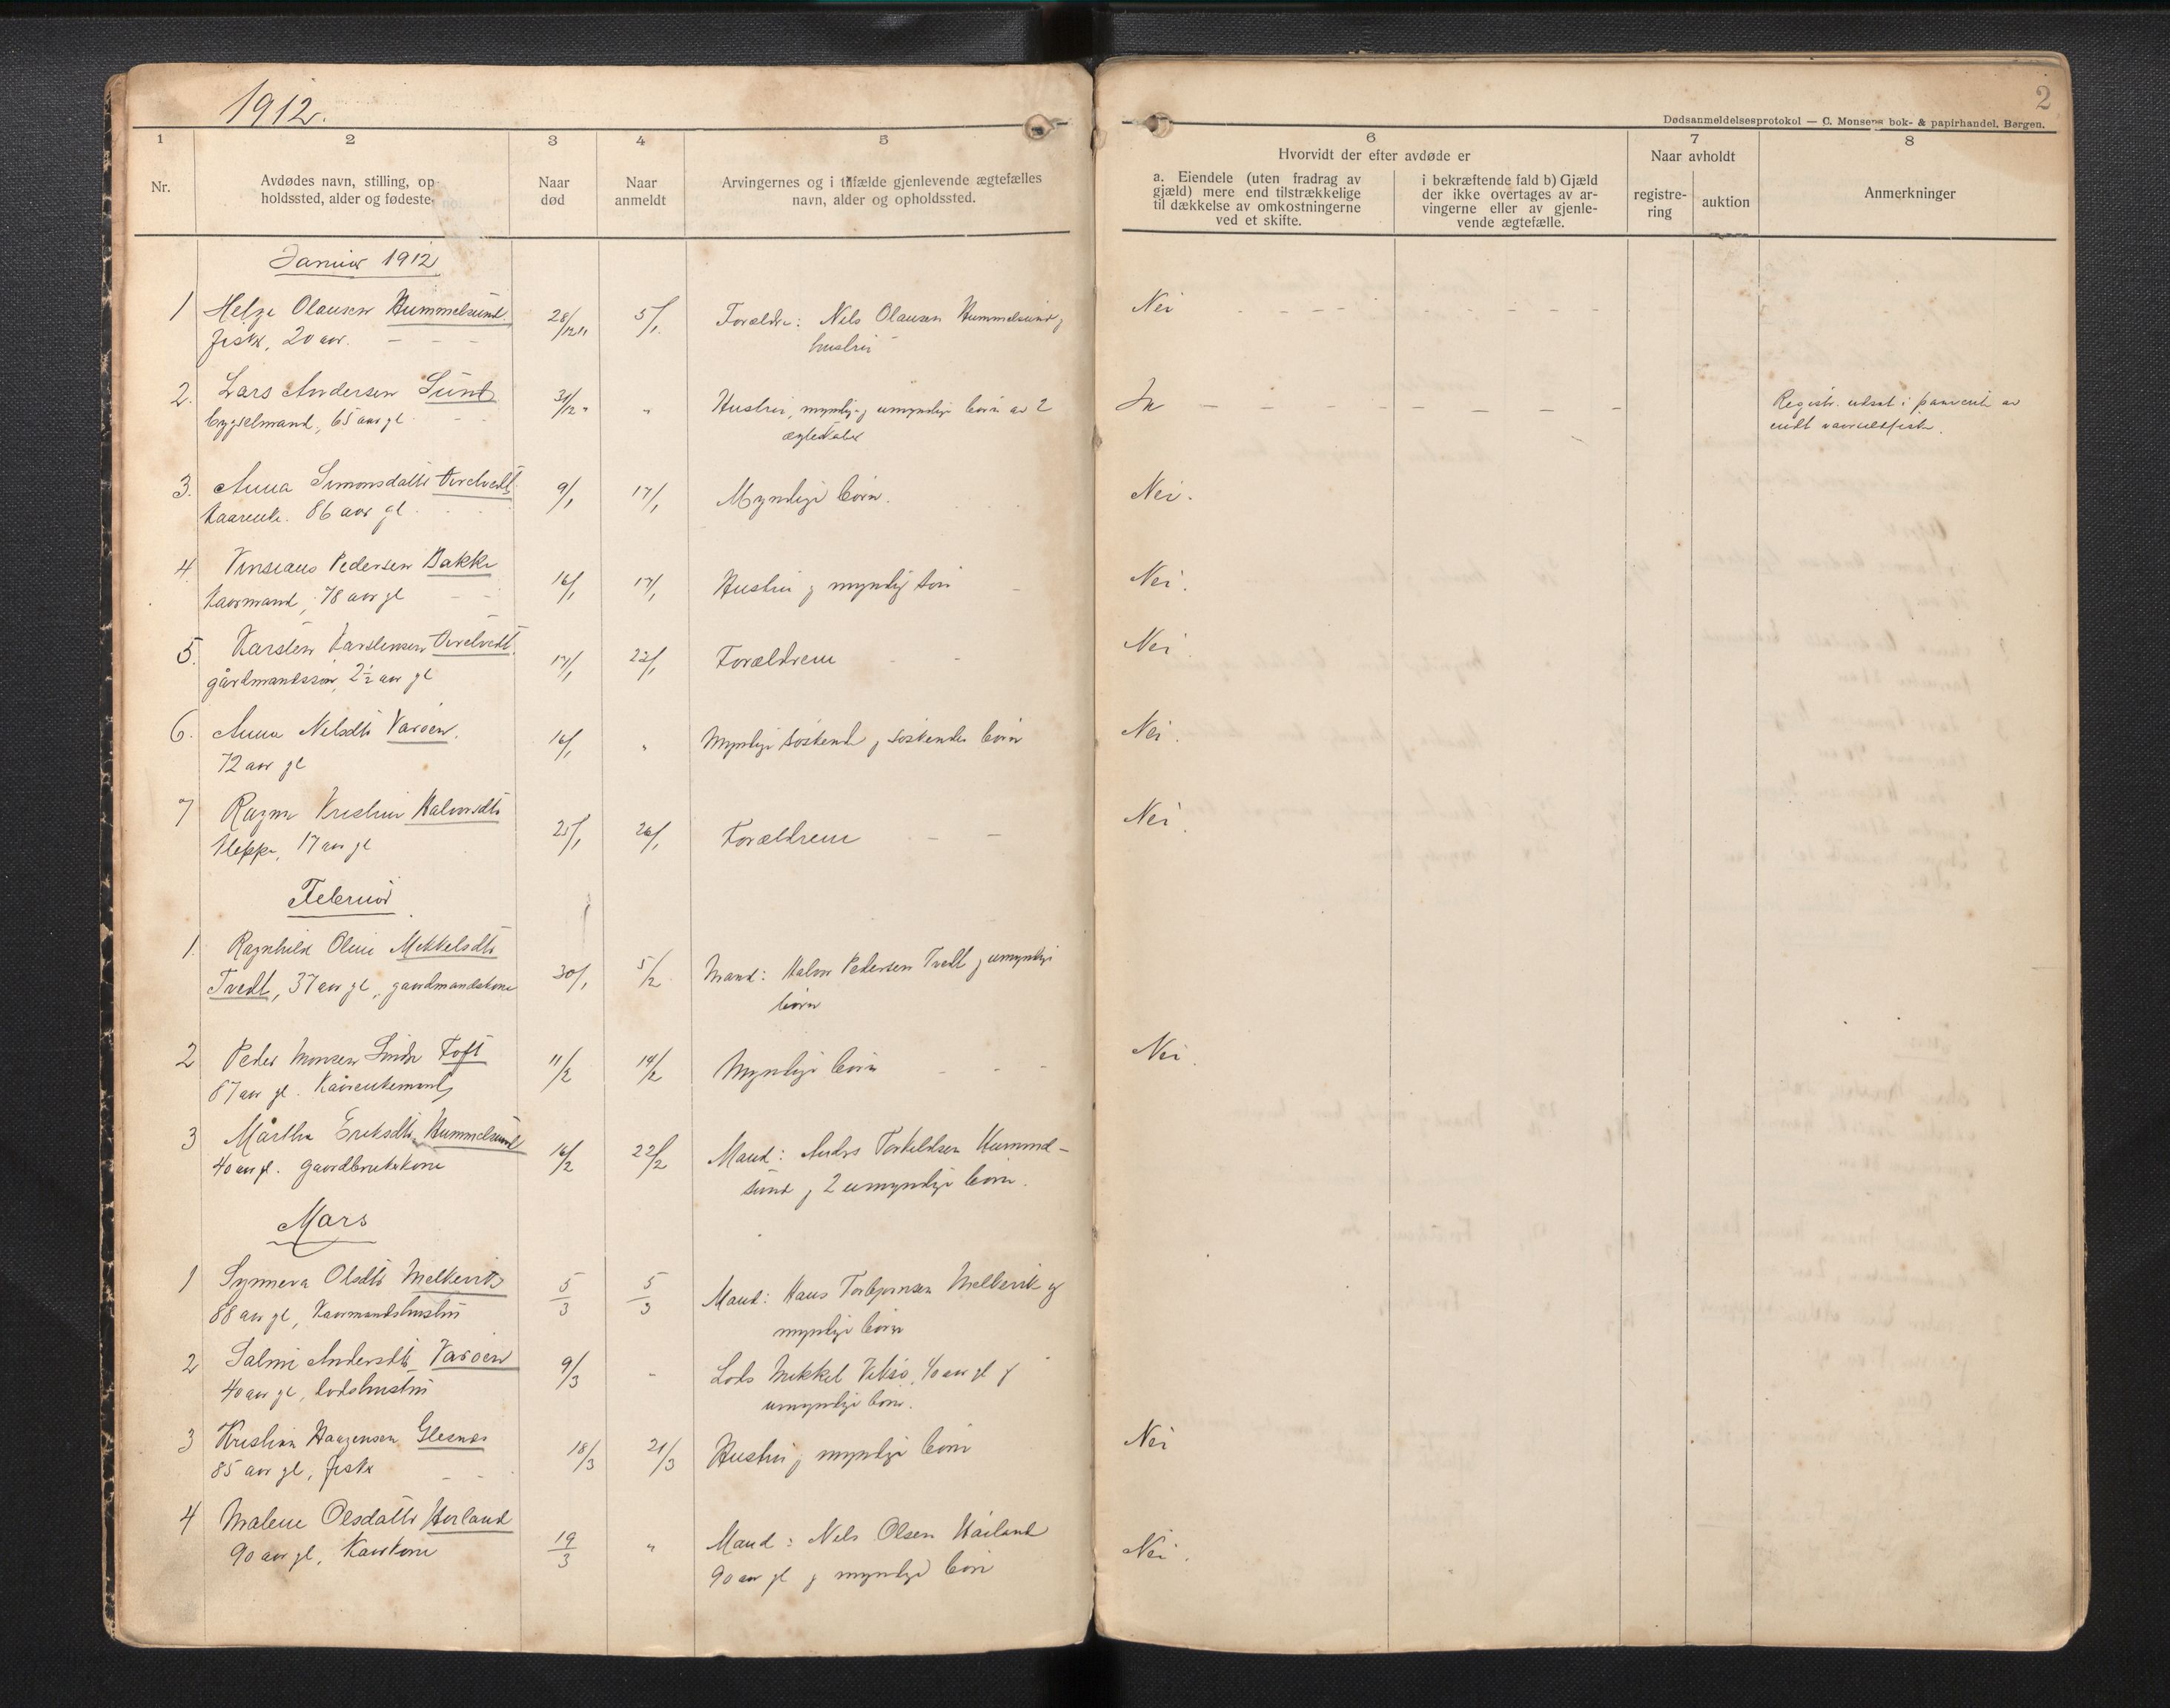 1912.
2
Dødsanmeldelsesprotokol — C. Monsens bok- & papirhandel, Bergen.
1 2 3 4 5 6 7 8
Nr.
Avdødes navn, stilling, op-
holdssted, alder og fødeste-
Naar
død
Naar
anmeldt
Arvingernes og i tilfælde gjenlevende ægtefælles
navn, alder og opholdssted.
Hvorvidt der efter avdøde er
a. Eiendele (uten fradrag av
gjæld) mere end tilstrækkelige
til dækkelse av omkostningerne
ved et skifte.
i bekræftende fald b) Gjæld
der ikke overtages av ar-
vingerne eller av gjenle-
vende ægtefælle.
Naar avholdt
registre-
ring
auktion
Anmerkninger
Januar 1912
1 Helge Olausen Hummelsund 28/12 11 5/1 Forældre: Nils Olausen Hummelsund og Nei
fisker, 20 aar. hustru
2. Lars Andersen Sund 31/12 " " Hustru, myndige og umyndige børn av 2 Ja Registr. udsat i paavente av
bygselmand, 65 aar gl ægteskaber endt vaarsildfiske.
3. Anna Simonsdatter Tveitvedt 9/1 17/1 Myndige børn. Nei.
86 aar gl
4. Pedersen Bakke 16/1 17/1 Hustru og myndig søn Nei.
Kaarmand, 78 aar gl
5. Karsten Karstensen 17/1 22/1 Forældrene Nei
gårdmandssøn, 2½ aar gl
6. Anna Nilsdtr Varøen. 16/1 " Myndige søskende og søskendes børn Nei.
72 aar gl
7 Ragna Kristine Halvorsdtr 25/1 26/1 Forældrene Nei.
Kleppe, 17 aar gl
Februar
1. Ragnhild Oline Mikkelsdtr 30/1 5/2 Mand: Halvor Pedersen Tvedt og umyndige
Tvedt, 37 aar gl, gaardmandskone børn
2 Peder Monsen Toft 11/2 14/2 Myndige børn Nei.
87 aar gl. Kaarenkemand
3 Martha Eriksdtr Hummelsund 16/2 22/2 Mand: Anders Torkildsen Hummel-
40 aar gl. gaardbrukerkone sund og 2 umyndige børn.
Mars
1 Synneva Olsdtr Melkevik 5/3 5/3 Mand: Hans Torbjørnsen Melkevik og
88 aar gl, Kaarmandshustru myndige børn
2 Salmi Andersdtr Varøen 9/3 - Lods Mikkel 40 aar gl og
40 aar gl, lodshustru umyndige børn.
3 Kristian Haagensen Glesnes 18/3 21/3 Hustru og myndige børn Nei
85 aar gl, fisker
4 Malene Olsdatter Høiland 19/3 " Mand: Nils Olsen Høiland Nei.
90 aar gl, Kaarkone 90 aar gl og myndige børn